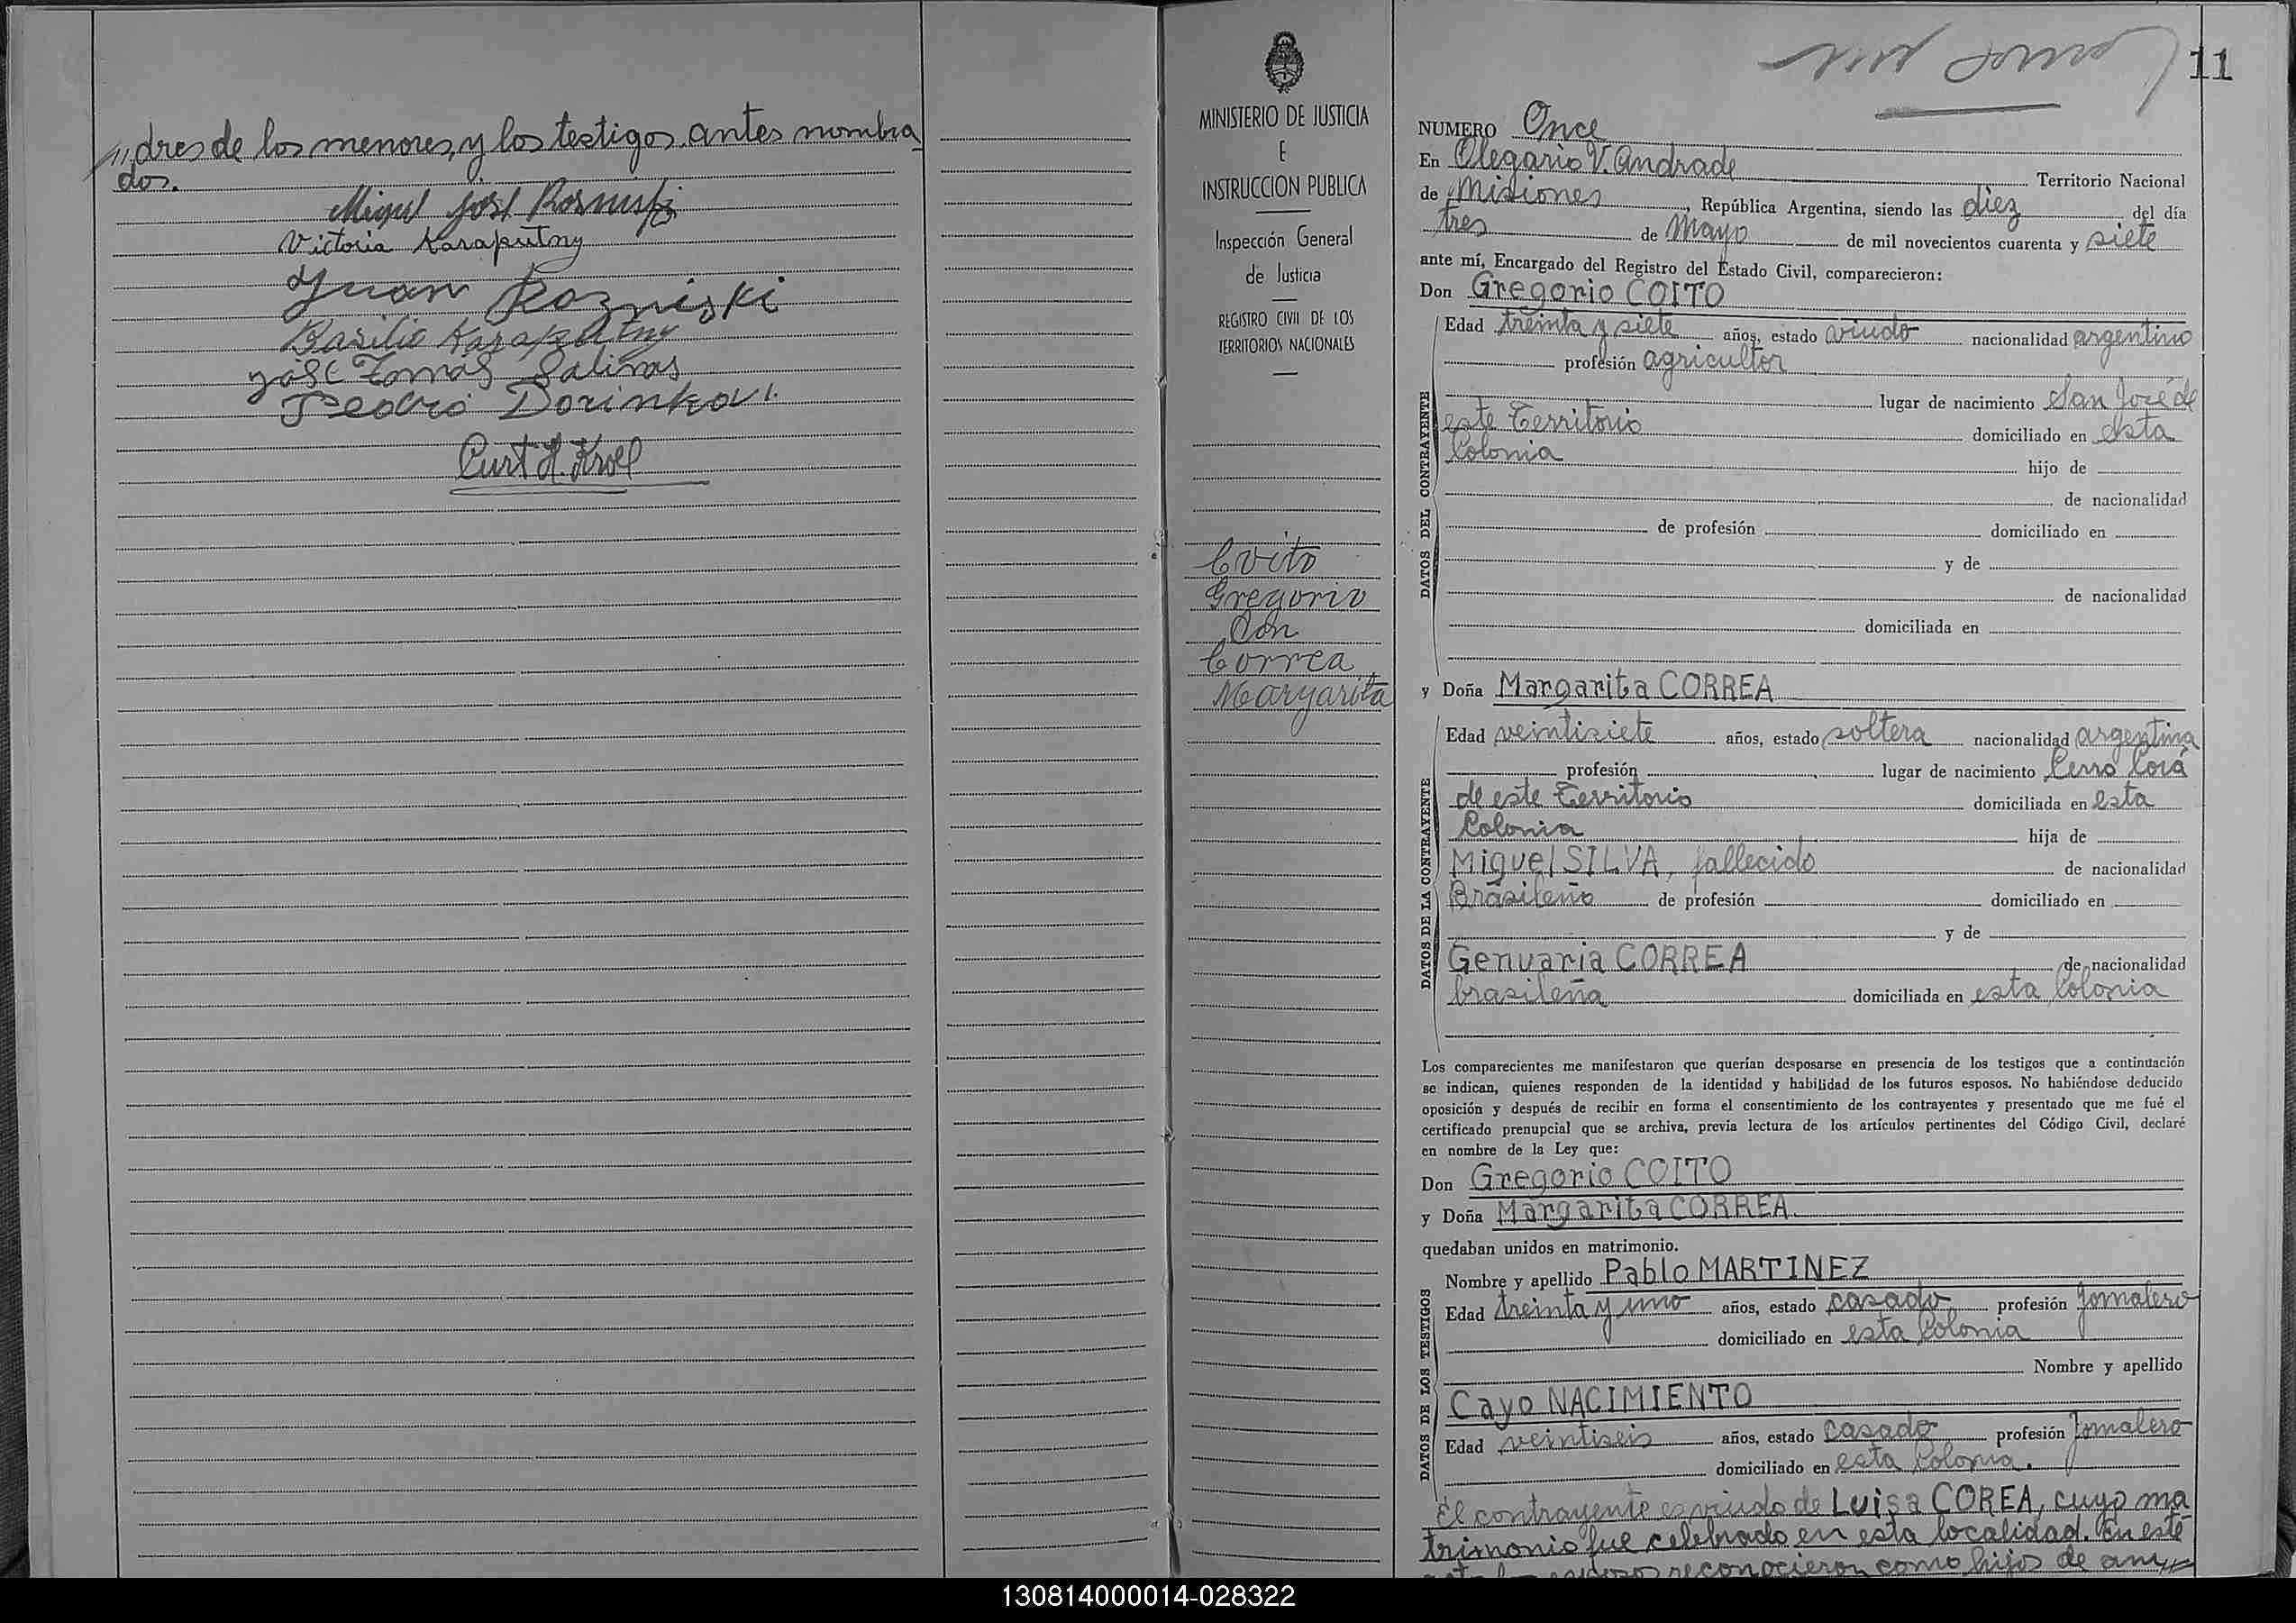 dres de los menores, y los testigos antes nombra
dos.
Victoria Karaputny
Juan Rozniski
Basilio Karaputny
José Tomas Salinas
Curt H. Kroll
MINISTERIO DE JUSTICIA
E
INSTRUCCION PUBLICA
Inspección General
de Justicia
REGISTRO CIVIL DE LOS
TERRITORIOS NACIONALES
Coito
Gregorio
Con
Correa
Margarita
11
NUMERO Once
En Olegario V. Andrade Territorio Nacional
de Misiones, República Argentina, siendo las diez del día
tres de Mayo de mil novecientos cuarenta y siete
ante mí, Encargado del Registro del Estado Civil, comparecieron:
Don Gregorio COITO
DATOS DEL CONTRAYENTE
Edad treinta y siete años, estado viudo nacionalidad argentino
profesión agricultor
lugar de nacimiento San José de
este Territorio domiciliado en esta
Colonia hijo de
de nacionalidad
de profesión domiciliado en
y de
de nacionalidad
domiciliada en
y Doña Margarita CORREA
DATOS DE LA CONTRAYENTE
Edad veintisiete años, estado soltera nacionalidad argentina
profesión lugar de nacimiento Cerro Corá
de este Territorio domiciliada en esta
Colonia hija de
Miguel SILVA, fallecido de nacionalidad
Brasileño de profesión domiciliado en
y de
Genuaria CORREA de nacionalidad
brasileña domiciliada en esta Colonia
Los comparecientes me manifestaron que querían desposarse en presencia de los testigos que a continuación
se indican, quienes responden de la identidad y habilidad de los futuros esposos. No habiéndose deducido
oposición y después de recibir en forma el consentimiento de los contrayentes y presentado que me fué el
certificado prenupcial que se archiva, previa lectura de los artículos pertinentes del Código Civil, declaré
en nombre de la Ley que:
Don Gregorio COITO
y Doña Margarita CORREA
quedaban unidos en matrimonio.
DATOS DE LOS TESTIGOS
Nombre y apellido Pablo MARTINEZ
Edad treinta y uno años, estado casado profesión Jornalero
domiciliado en esta Colonia
Nombre y apellido
Cayo NACIMIENTO
Edad veintiseis años, estado casado profesión Jornalero
domiciliado en esta Colonia.
El contrayente es viudo de Luisa COREA, cuyo ma
trimonio fue celebrado en esta localidad. En este
reconocieron como hijos de am
130814000014-028322